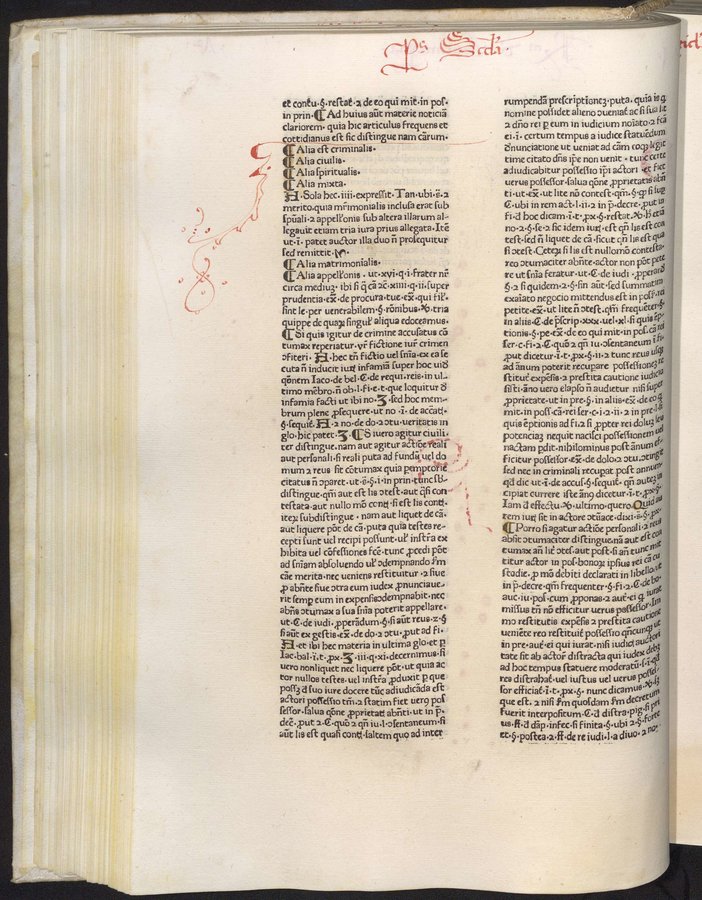 Ps Scda.
et contu·§·restat·2 de eo qui mit·in pos·
in prin·¶Ad huius aūt materie noticiā
clariorem·quia hic articulus frequens et
cottidianus est sic distingue nam cārum·
¶Alia est criminalis·
¶Alia ciuilis·
¶Alia spiritualis·
¶Alia mixta·
A·Sola hec·iiii·expressit·Tan·ubi·s̄·2
merito·quia mr̄imonialis inclusa erat sub
sp̄uali·2 appell'onis sub altera illarum al-
legauit etiam tria iura prius allegata·Itē
ut·i·patet auctor illa duo nō prosequitur
sed remittit·
¶Alia matrimonialis·
¶Alia appell'onis·ut·xvi·q·i·frater nē
circa mediuȝ·ibi si q̄ cā 2c̄·xiiii·q·ii·super
prudentia·ex̄·de procura·tue·ex̄·qui fil'·
sint le·per uenerabilem·§·rōnibus·tria
quippe de quarȝ singul' aliqua edoceamus·
¶Si quis igitur de crimine accusatus cō
tumax reperiatur·vr̄ fictione iur' crimen
ɔfiteri·A·hec tn̄ fictio uel sn̄ia·ex ea se
cuta nō inducit iur' infamiā super hoc uid'
q̄onem Iaco·de bel·C·de requi·reis·in ul-
timo mēbro·n̄ ob·l·fi·e·t·que loquitur d'
infamia facti ut ibi no·3·sed hoc mem-
brum plene ꝓsequere·ut no·i·de accat'·
§·sequit'·A·2 no·de do·2 ɔtu·ueritatis in
glo·hic patet·3·¶Si uero agitur ciuili
ter distingue·nam aut agitur actiōe reali
aut personali·si reali puta ad fundū uel do
mum 2 reus sit cōtumax quia pemptorie
citatus n̄ ɔparet·ut·s̄·§·i·in prin·tunc sb̄-
distingue·qm̄ aut est lis ɔtest·aut q̄si con
testata·aut nullo mō cont'·si est lis cont'·
iterȝ subdistingue·nam aut liquet de cā·
aut liquere pōt de cā·puta quia testes re-
cepti sunt uel recipi possunt·ul' instr̄a ex
hibita uel cōfessiones fc̄e·tunc ꝓcedi pōt
ad sn̄iam absoluendo ul' ɔdempnando s'm
cāe merita·nec ueniens restituitur·2 siue
ꝓ abn̄te siue ɔtra eum iudex ꝓnunciaue-
rit semꝑ eum in expensis ɔdempnabit·nec
abn̄s ɔtumax a sua sn̄ia poterit appellare·
ut·C·de iudi·ꝓperādum·§·si aūt reus·2·§
si aūt ex gestis·ex̄·de do·2 ɔtu·put ad fi·
A·et ibi hec materia in ultima glo·et p
Iac·bal·i·t·px·3·iii·q·xi·decernimus·si
uero nonliquet nec liquere pōt·ut quia ac
tor nullos testes·uel instr̄a ꝓduxit ꝑ que
possȝ d' suo iure docere tūc adiudicāda est
actori possessio tm̄·2 statim fiet uero pos
sessor·salua q̄one ꝓprietat' abn̄ti·ut in p̄-
dec̄·put·2·C·quō 2 qn̄ iu·l·ɔsentaneum·si
aūt lis est quasi cont'·saltem quo ad inter
rumpendā prescriptionez·puta·quia is q̄
nomine possidet alieno ueniat ac si sua lit'
2 dn̄o rei ꝑ eum in iudicium noīato·2 fcā
ei·i·certum tempus a iudice statuēdum
d'nunciatione ut ueniat ad cām coqȝ legit
time citato dn̄s ip̄e non uenit·tunc certe
adiudicabitur possessio ip̄i actori·et fiet
uerus possessor·salua q̄one ꝓprietatis abn̄
ti·ut·ex̄·ut lite nō contest·qm̄·§·q' si sup
C·ubi in rem act·l·ii·2 in p̄·decre·put in
fi·d' hoc dicam·i·t·px·§·restat·h' etiā
no·2·§·se·2 sic idem iur'·est qn̄ lis est con
test·sed nō liquet de cā·sicut qn̄ lis est qua
si ɔtest·Ceterȝ si lis est nullomō contesta·
reo ɔtumaciter abn̄te·actor non pōt pete
re ut sn̄ia feratur·ut·C·de iudi·ꝓperand'
§·2 si quidem·2·§·sin aūt·sed summatim
exaiato negocio mittendus est in poss'·rei
petite·ex̄·ut lite nō ɔtest·qm̄ frequēter·§·
in aliis·C·de p̄scrip·xxx·uel·xl·si quis em̄p
tionis·§·pe·ex̄·de eo qui mit·in pos·cā rei
ser·c·fi·2·C·quō 2 qn̄ iu·ɔsentaneum i·
put dicetur·i·t·px·§·ii·2 tunc reus usqȝ
ad ānum poterit recupare possessionez re
stitut' expēsis·2 prestita cautione iudicio
sisti·āno uero elapso nō audietur nisi super
ꝓprietate·ut in pre·§·in aliis·ex̄·de eo qui
mit·in poss·cā·rei ser·c·i·2·ii·2 in pre·l·si
quis ēptionis ad fi·2 si ꝓpter rei dolȝ ul'
potenciaȝ nequit nacisci possessionem uel
nactam pdit·nihilominus post ānum ef-
ficitur possessor·ex̄·de dolo·2 ɔtu·ɔtingit
sed nec in criminali recupat post annum·
qd' dic ut·i·de accus·§·sequit'·qn̄ autez in
cipiat currere iste ānȝ dicetur·i·t·px·§·
Iam d' effectu·ultimo·quero·Quid au
tem iur' sit in actore ɔtuāce·dixi·s̄·§·px·
¶Porro si agatur actiōe personali·2 reus
absit ɔtumaciter distinguenā aut est con
tumax an̄ lit' ɔtes'·aut post·si an̄ tunc mit
titur actor in pos·bonorȝ ipsius rei cā cu
stodie·ꝓ mō debiti declarati in libello·ut
in p̄·decre·qm̄ frequenter·§·fi·2·C·de bo·
auc·iu·pos·cum ꝓponas·2 aut·ei·q' iurat
missus tn̄ nō efficitur uerus possessor·Im̄
mo restitutis expēsis 2 prestita cautione
uenire reo restituit' possessio qn̄cunqȝ ut
in pre·aut'·ei qui iurat·nisi iudici auctori
tate sit ab actor' distracta qui iudex debȝ
ad hoc tempus statuere moderatū·s·i·qd'
res distrahat'·uel iustus uel uerus posses'
sor efficiat'·i·t·px·§·nunc dicamus·
que est·2 nisi s'm quosdam s'm decretum
fuerit interpositum·C·d' distra·pig·si pri
us·ff·d' dāp·infec·si finita·§·ubi·2·§·forte
et·§·postea·2·ff·de re iudi·l·a diuo·2 no·